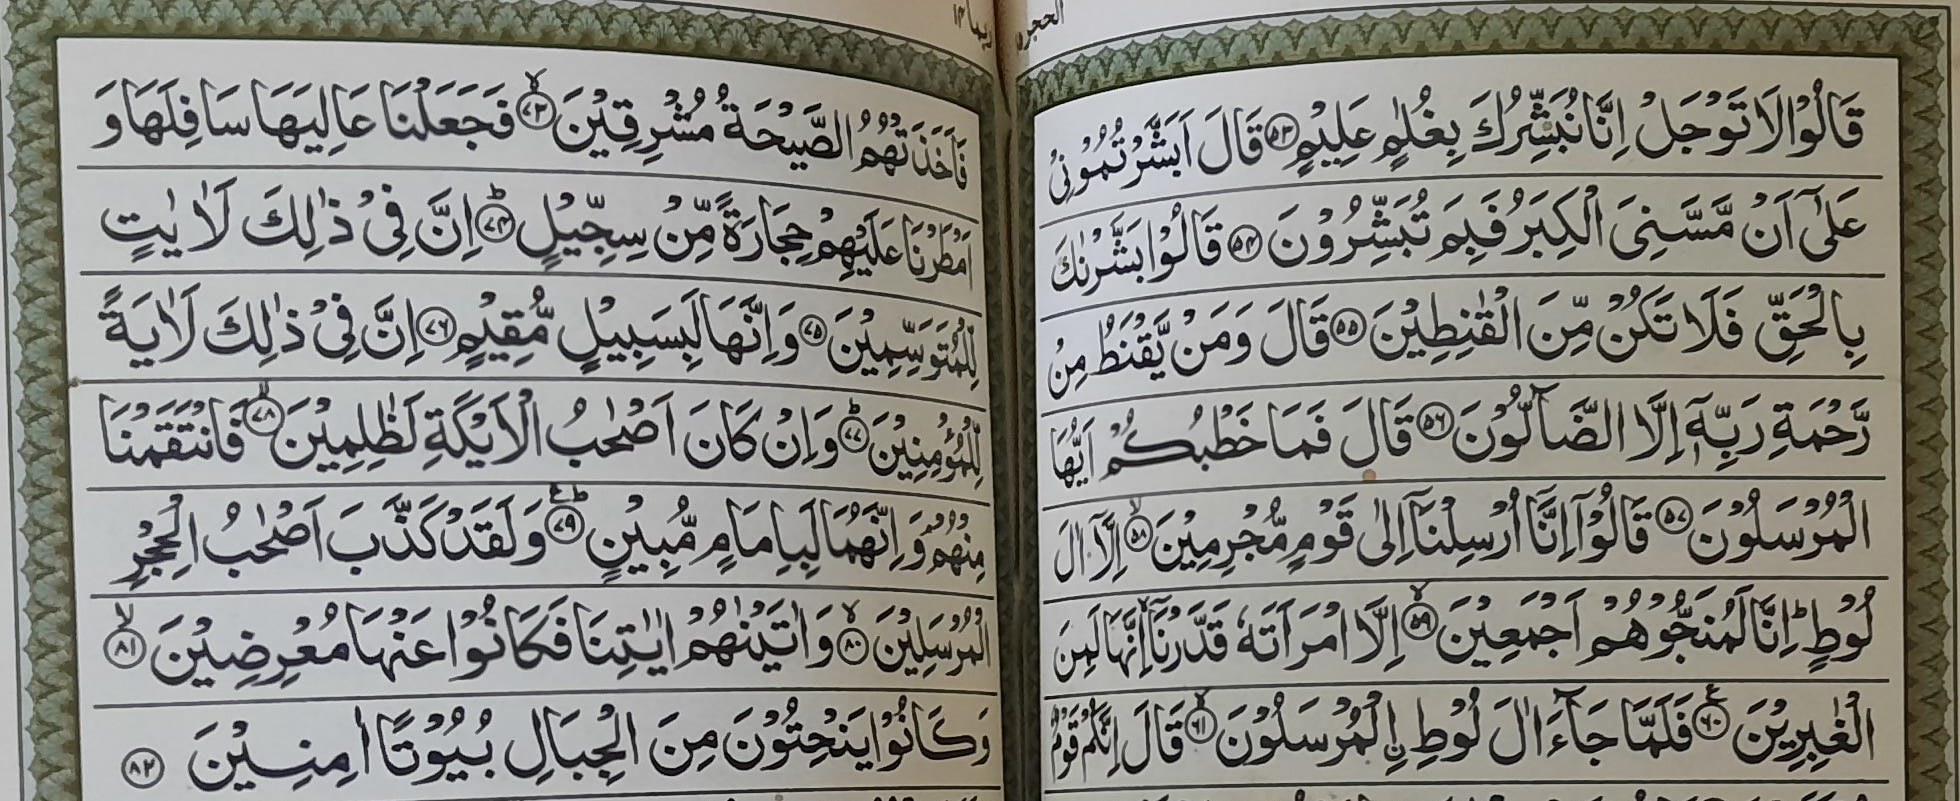 الحجر ١٥
قَالُوْا لَا تَوْجَلْ اِنَّا نُبَشِّرُكَ بِغُلٰمٍ عَلِيْمٍ ﴿٥٣﴾ قَالَ اَبَشَّرْتُمُوْنِيْ
عَلٰٓى اَنْ مَّسَّنِيَ الْكِبَرُ فَبِمَ تُبَشِّرُوْنَ ﴿٥٤﴾ قَالُوْا بَشَّرْنٰكَ
بِالْحَقِّ فَلَا تَكُنْ مِّنَ الْقٰنِطِيْنَ ﴿٥٥﴾ قَالَ وَمَنْ يَّقْنَطُ مِنْ
رَّحْمَةِ رَبِّهٖٓ اِلَّا الضَّآلُّوْنَ ﴿٥٦﴾ قَالَ فَمَا خَطْبُكُمْ اَيُّهَا
الْمُرْسَلُوْنَ ﴿٥٧﴾ قَالُوْٓا اِنَّآ اُرْسِلْنَآ اِلٰى قَوْمٍ مُّجْرِمِيْنَ ﴿٥٨﴾ۙ اِلَّآ اٰلَ
لُوْطٍ ؕ اِنَّا لَمُنَجُّوْهُمْ اَجْمَعِيْنَ ﴿٥٩﴾ۙ اِلَّا امْرَاَتَهٗ قَدَّرْنَآ ۙ اِنَّهَا لَمِنَ
الْغٰبِرِيْنَ ﴿٦٠﴾ۧ فَلَمَّا جَآءَ اٰلَ لُوْطِ ۨالْمُرْسَلُوْنَ ﴿٦١﴾ۙ قَالَ اِنَّكُمْ قَوْمٌ
ربما ١٤
فَاَخَذَتْهُمُ الصَّيْحَةُ مُشْرِقِيْنَ ﴿٧٣﴾ۙ فَجَعَلْنَا عَالِيَهَا سَافِلَهَا وَ
اَمْطَرْنَا عَلَيْهِمْ حِجَارَةً مِّنْ سِجِّيْلٍ ﴿٧٤﴾ؕ اِنَّ فِيْ ذٰلِكَ لَاٰيٰتٍ
لِّلْمُتَوَسِّمِيْنَ ﴿٧٥﴾ وَاِنَّهَا لَبِسَبِيْلٍ مُّقِيْمٍ ﴿٧٦﴾ اِنَّ فِيْ ذٰلِكَ لَاٰيَةً
لِّلْمُؤْمِنِيْنَ ﴿٧٧﴾ؕ وَاِنْ كَانَ اَصْحٰبُ الْاَيْكَةِ لَظٰلِمِيْنَ ﴿٧٨﴾ۙ فَانْتَقَمْنَا
مِنْهُمْ ۘ وَاِنَّهُمَا لَبِاِمَامٍ مُّبِيْنٍ ﴿٧٩﴾ؕ ۧ وَلَقَدْ كَذَّبَ اَصْحٰبُ الْحِجْرِ
الْمُرْسَلِيْنَ ﴿٨٠﴾ۙ وَاٰتَيْنٰهُمْ اٰيٰتِنَا فَكَانُوْا عَنْهَا مُعْرِضِيْنَ ﴿٨١﴾ۙ
وَكَانُوْا يَنْحِتُوْنَ مِنَ الْجِبَالِ بُيُوْتًا اٰمِنِيْنَ ﴿٨٢﴾